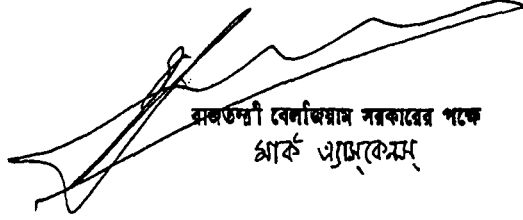 রাজতন্ত্রী বেলজিয়াম সরকারের পক্ষে
মার্ক এ্যাস্কেনস্